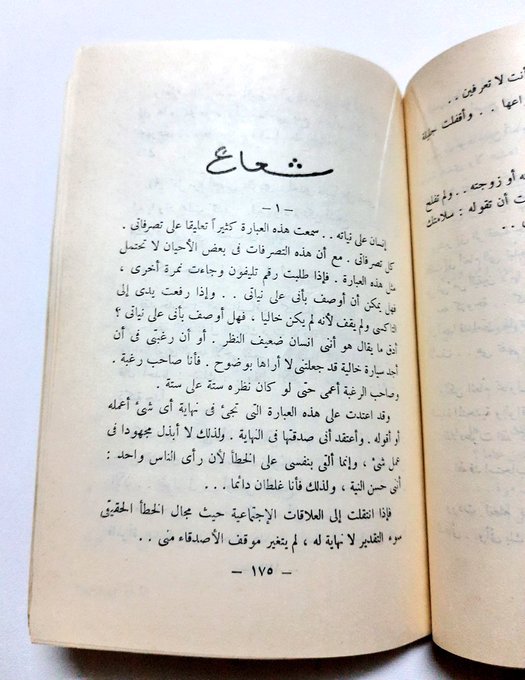 شعاع
- ١ -
إنسان على نياته . . سمعت هذه العبارة كثيراً تعليقا على تصرفاتى .
كل تصرفاتى . مع أن هذه التصرفات فى بعض الأحيان لا تحتمل
مثل هذه العبارة . فإذا طلبت رقم تليفون وجاءت نمرة أخرى ،
فهل يمكن أن أوصف بأنى على نياتى . . وإذا رفعت يدى إلى
التاكسى ولم يقف لأنه لم يكن خاليا . فهل أوصف بأنى على نياتى ؟
أدق ما يقال هو أننى انسان ضعيف النظر . أو أن رغبتى فى أن
أجد سيارة خالية قد جعلتنى لا أراها بوضوح . فأنا صاحب رغبة .
وصاحب الرغبة أعمى حتى لو كان نظره ستة على ستة .
وقد اعتدت على هذه العبارة التى تجئ فى نهاية أى شئ أعمله
أو أقوله . وأعتقد أنى صدقتها فى النهاية . ولذلك لا أبذل مجهودا فى
عمل شئ ، وإنما ألقى بنفسى على الخطأ لأن رأى الناس واحد :
أنى حسن النية ، ولذلك فأنا غلطان دائما . .
فإذا انتقلت إلى العلاقات الإجتماعية حيث مجال الخطأ الحقيقى
سوء التقدير لا نهاية له ، لم يتغير موقف الأصدقاء منى . .
- ١٧٥ -
أنت لا تعرفين . .
. . وأقفلت جليلة
أو زوجته . . ولم تفلح
أن تقوله : سلامتك